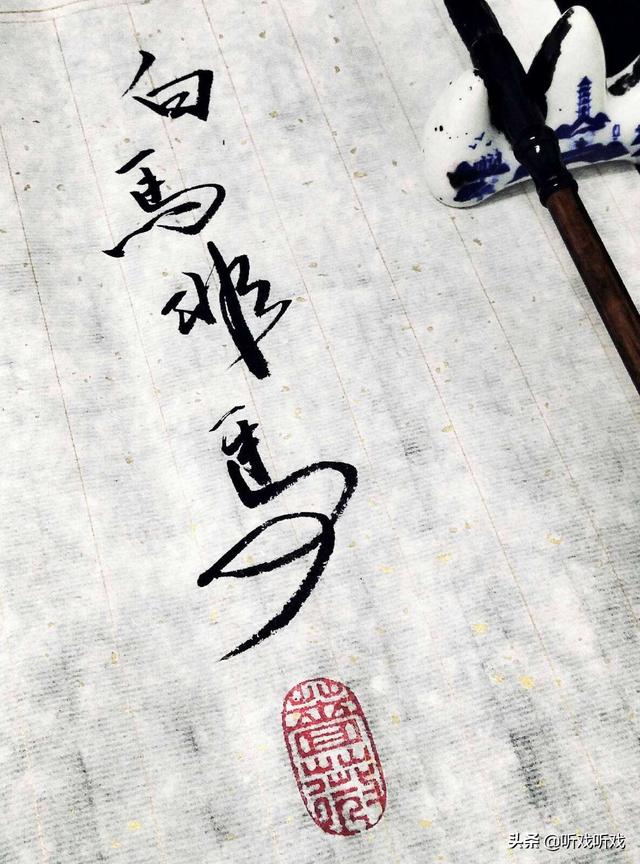 白馬非馬
头条 @听戏听戏